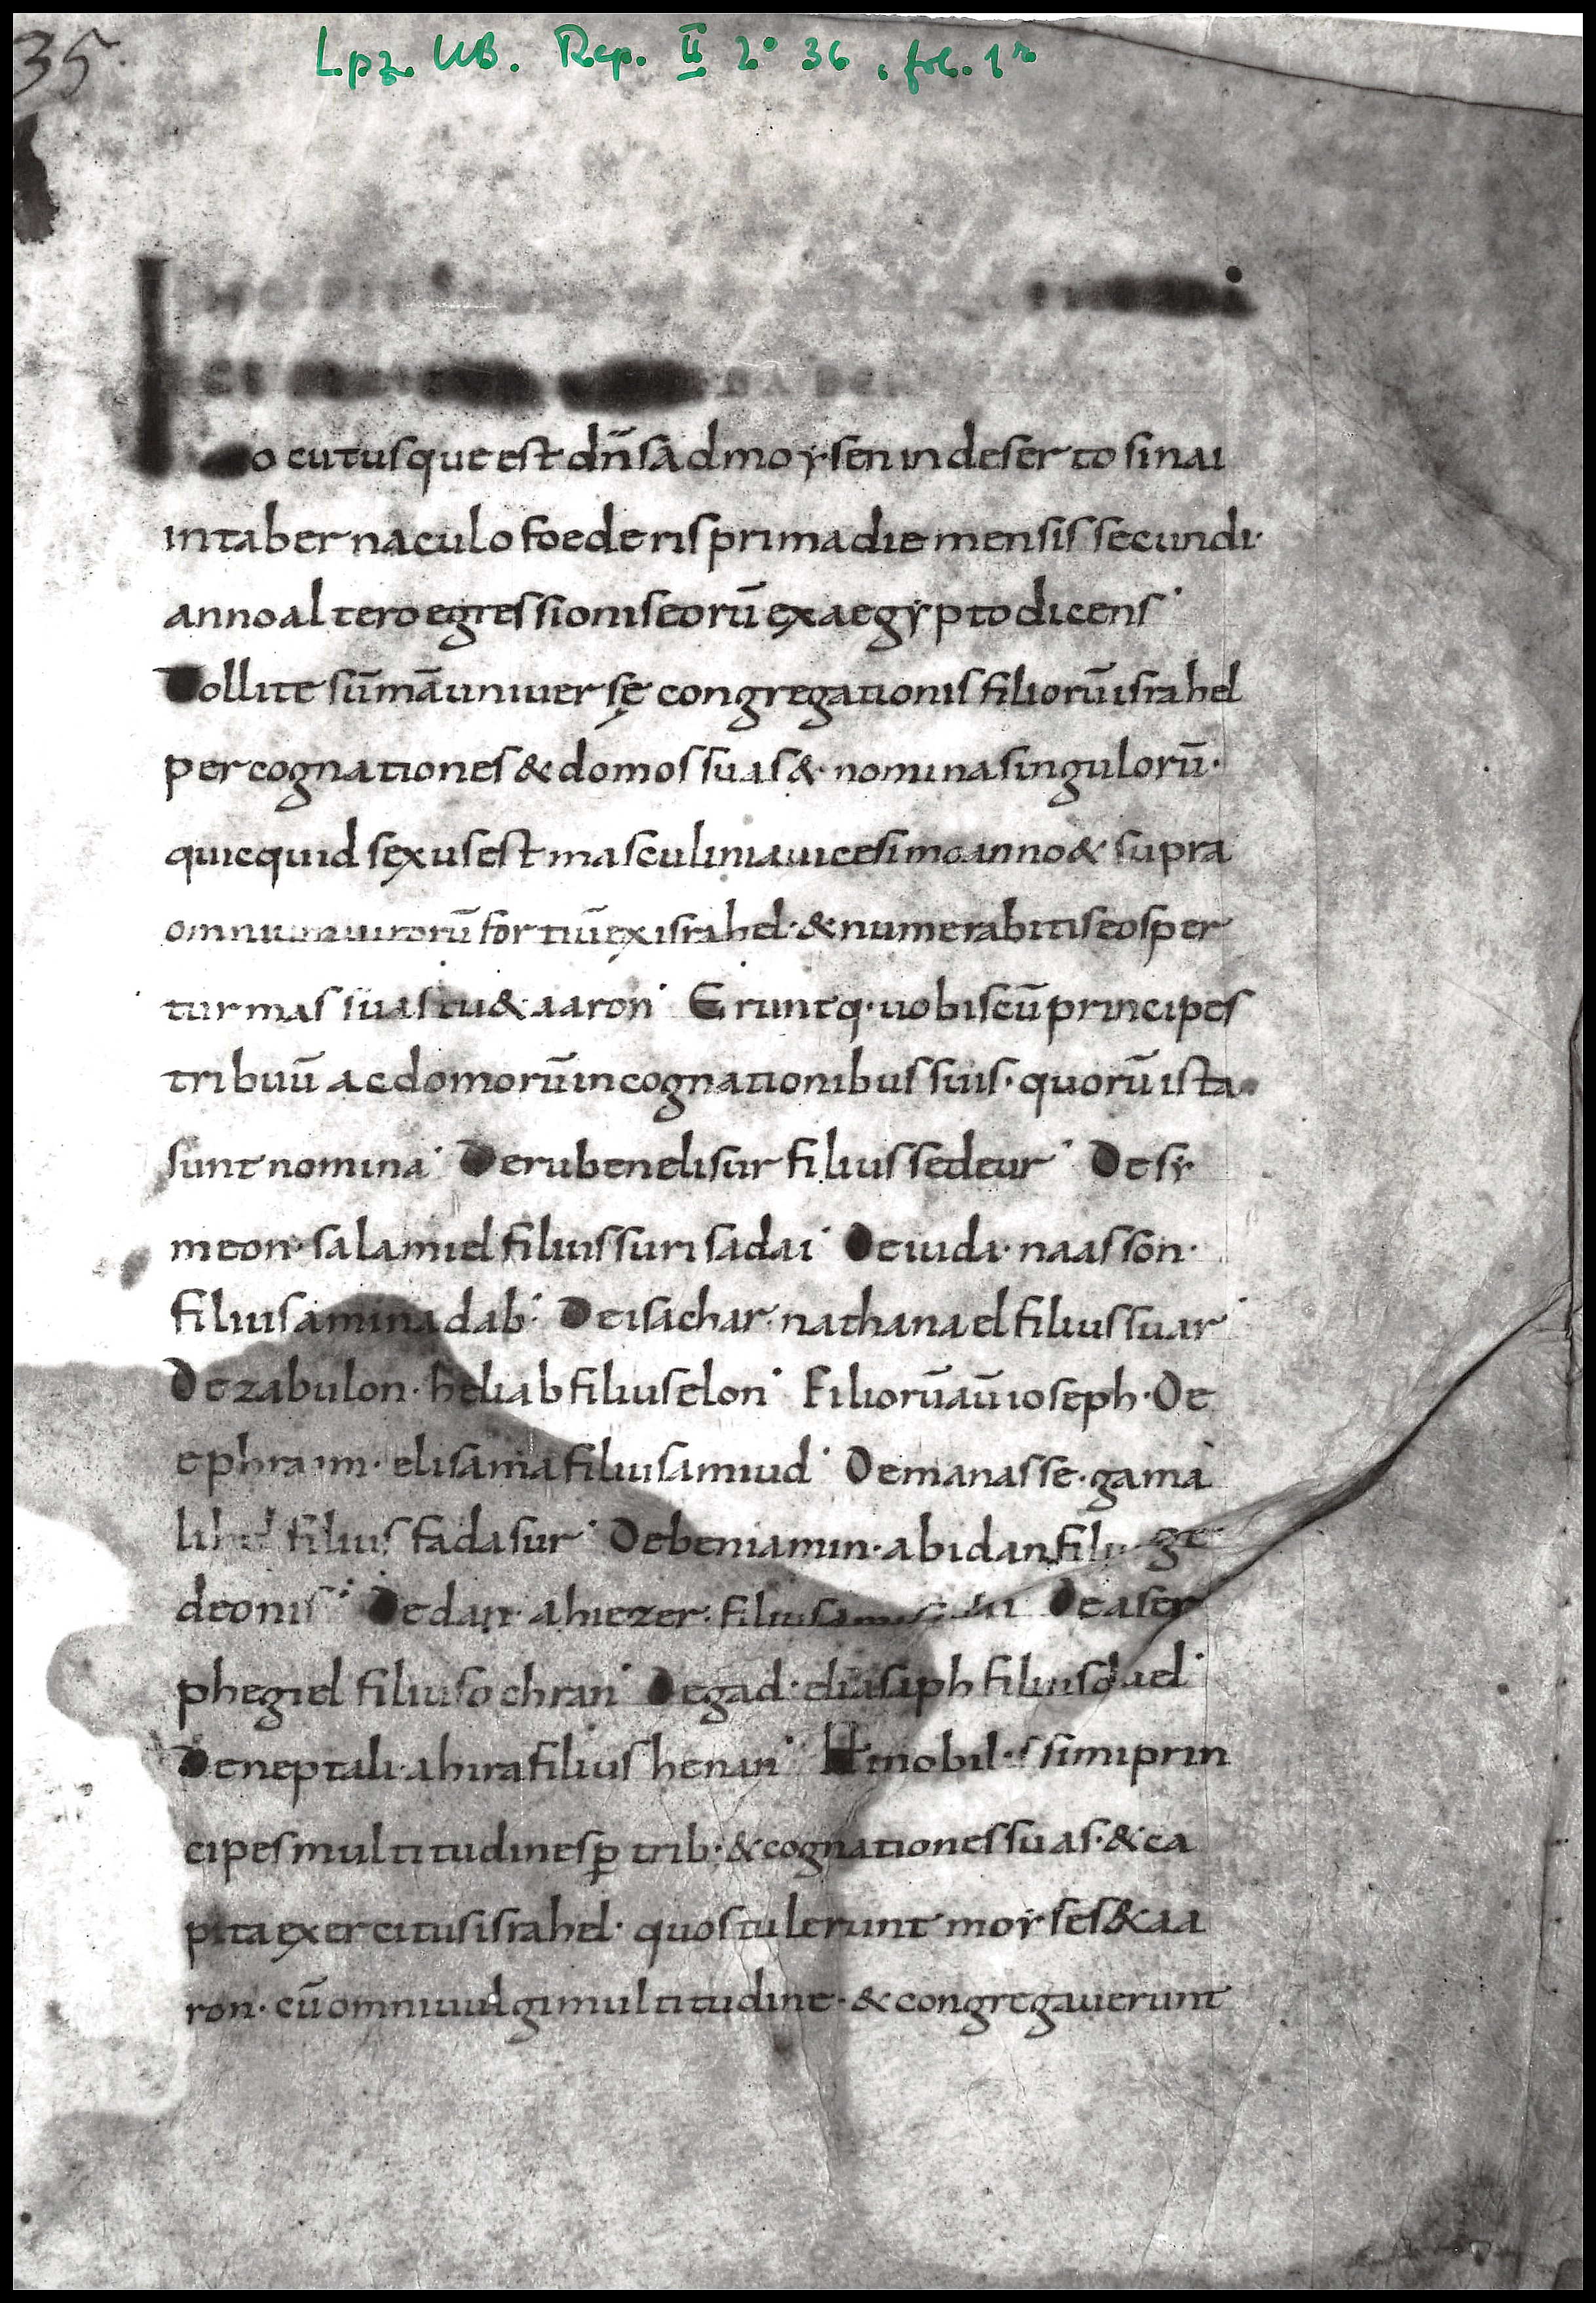 35.
Lpz. UB. Rep. II 2° 36, fol. 1r
Locutusque est dn̄s ad moẏsen in deserto sinai
in tabernaculo foederis prima die mensis secundi·
anno altero egressionis eorū ex aegẏpto dicens·
Tollite sūmā uniuersę congregationis filiorū israhel
per cognationes & domos suas & nomina singulorū·
quicquid sexus est masculini a uicesimo anno & supra
omnium uirorū fortiū ex israhel· & numerabitis eos per
turmas suas tu & aaron· Eruntq· uobiscū principes
tribuū ac domorū in cognationibus suis· quorū ista
sunt nomina· De ruben elisur filius sedeur· De sẏ
meon· salamiel filius surisadai· De iuda· naasson·
filius aminadab· De isachar· nathanael filius suar·
De zabulon· heliab filius elon· Filiorū aū ioseph· De
ephraim· elisama filius amiud· De manasse· gama
lihel filius fadasur· De beniamin· abidan filius ge
deonis· De dan· ahiezer· filius De aser
phegiel filius ochran· De gad· eliasaph filius duel·
De neptali· ahira filius henan· Hi nobilissimi prin
cipes multitudines p̱ trib:· & cognationes suas· & ca
pita exercitus israhel· quos tulerunt moẏses & aa
ron· cū omni uulgi multitudine· & congregauerunt